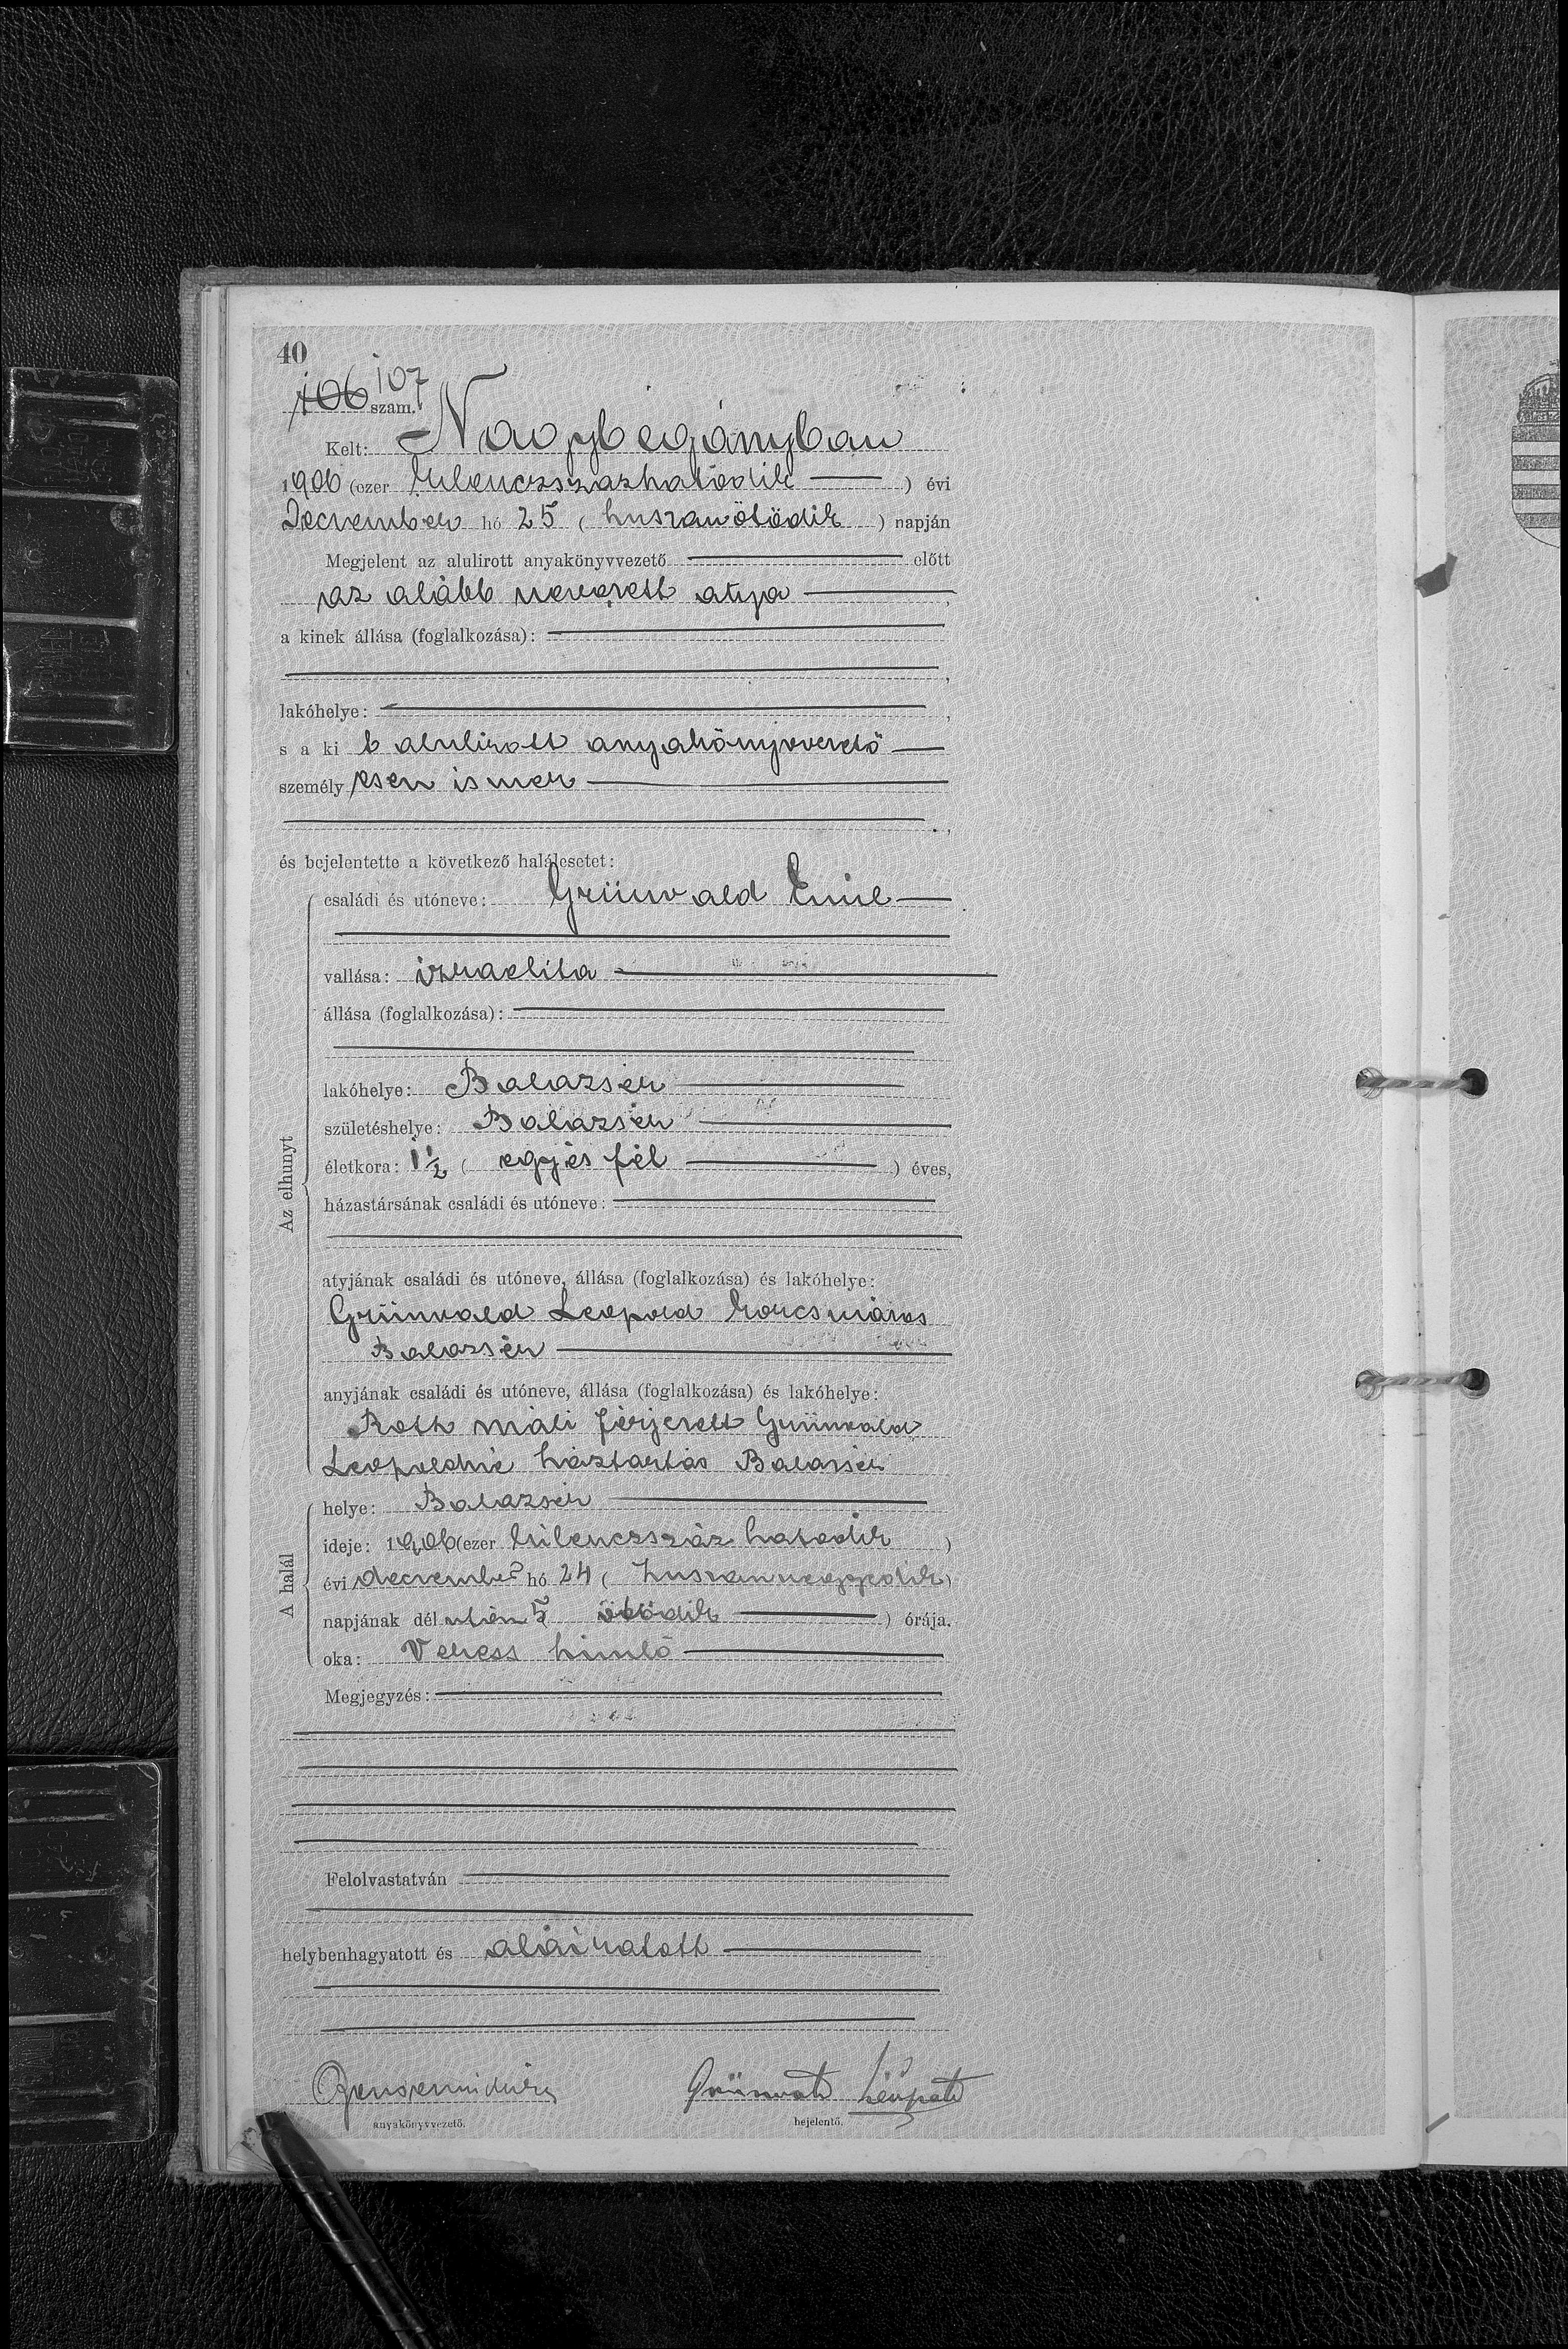 40
106 107
szám.
Kelt: Nagybégányban
1906 (ezer kilenczszázhatodik) évi
Deczember hó 25 (huszanötödik) napján
Megjelent az alulirott anyakönyvvezető előtt
az alább nevezett atya,
a kinek állása (foglalkozása):
lakóhelye:
s a kit alulirott anyakönyvvezető
személyesen ismer
és bejelentette a következő halálesetet:
családi és utóneve: Grünvald Emil
vallása: izraelita
állása (foglalkozása):
lakóhelye: Balazsér
születéshelye: Balazsér
életkora: 1 1/2 (egyés fél) éves,
házastársának családi és utóneve:
Az elhunyt
atyjának családi és utóneve, állása (foglalkozása) és lakóhelye:
Grünvald Leopold korcsmáros
Balazsér
anyjának családi és utóneve, állása (foglalkozása) és lakóhelye:
Roth máli férjezett Grünvald
Leopoldné háztartás Balazsér
helye: Balazsér
ideje: 1906 (ezer kilenczszáz hatodik)
évi deczember hó 24 (huszannegyedik)
napjának délután 5 ötödik) órája.
oka: Veress himlő
A halál
Megjegyzés:
Felolvastatván
helybenhagyatott és aláiratott
Grünwald Leopold
anyakönyvvezető. bejelentő.